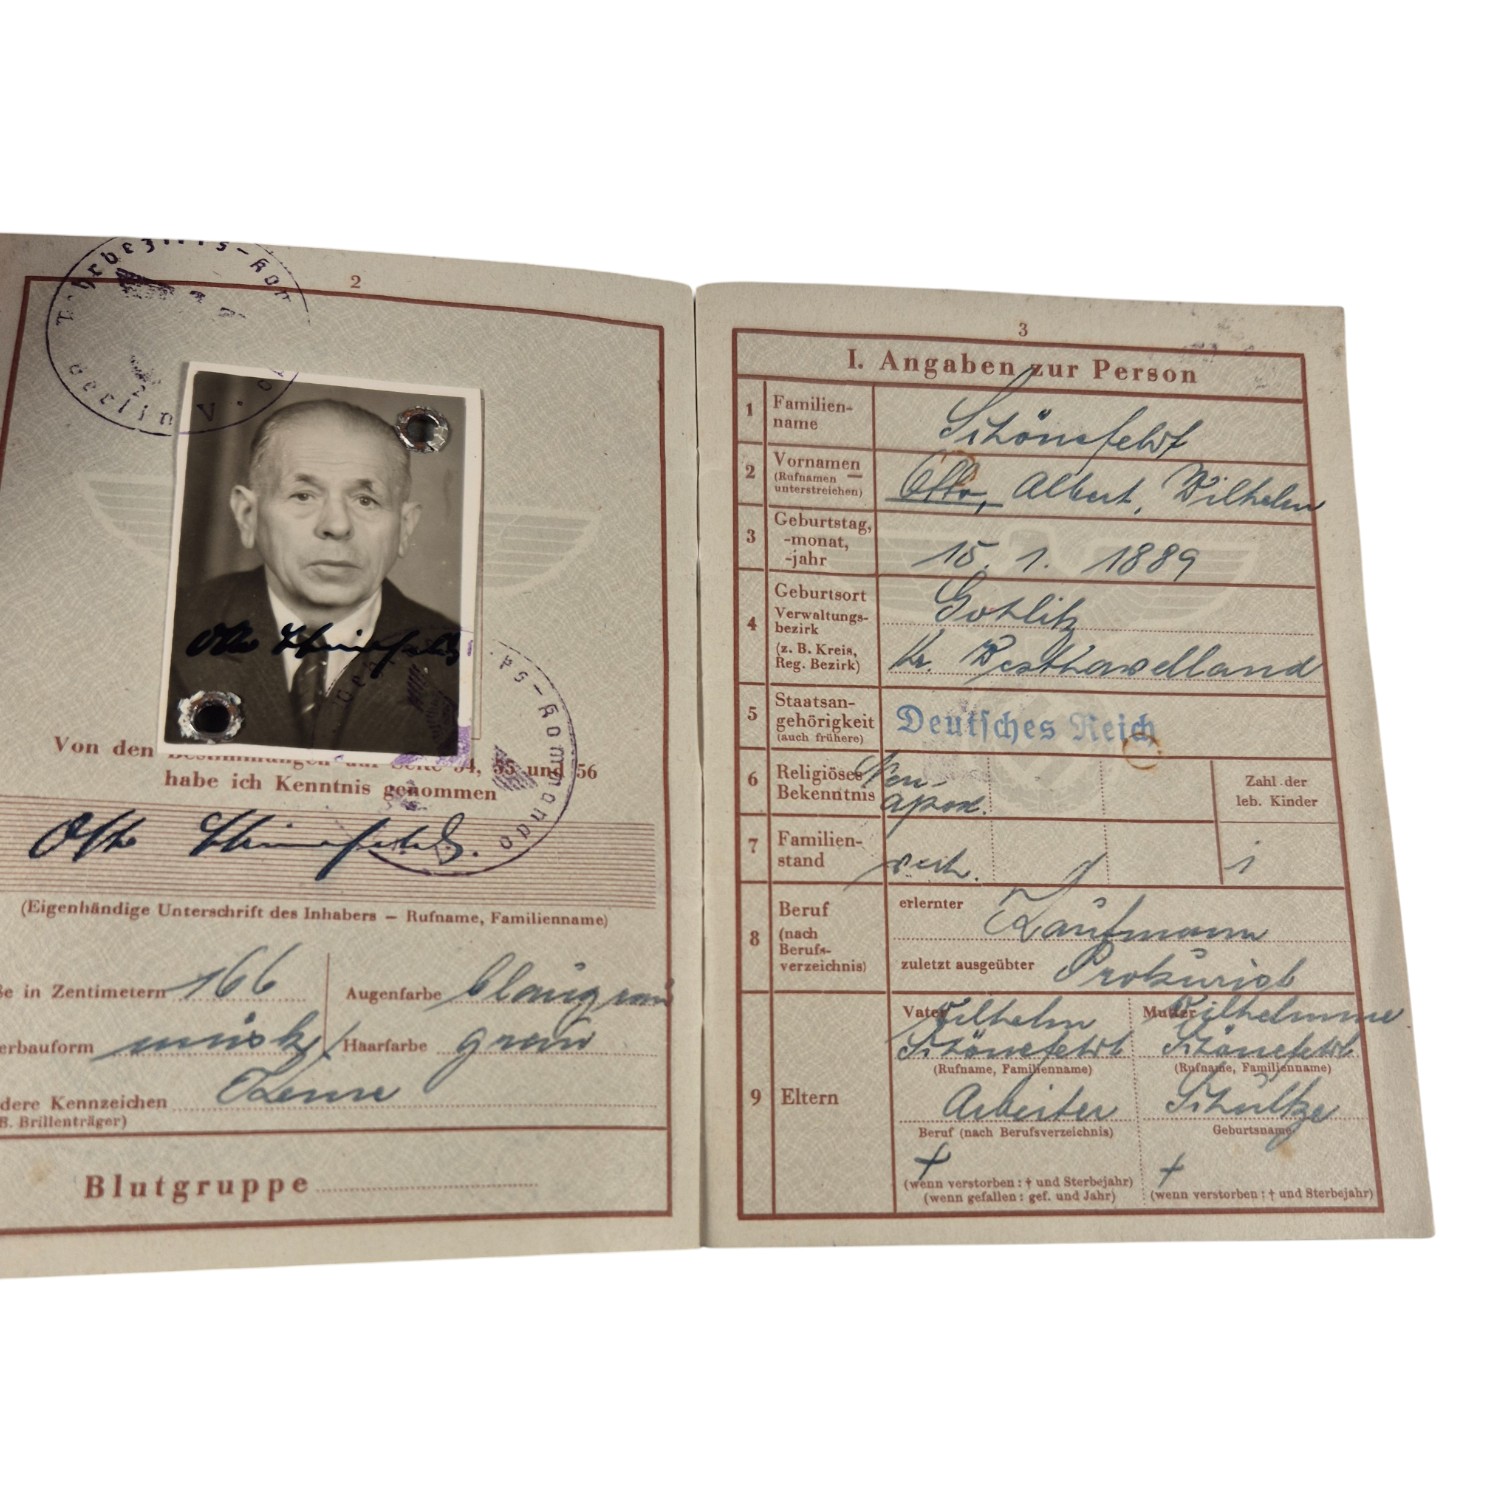 2
Wehrbezirks-Kom
Berlin V.
Otto Schönefeld
Von den Bestimmungen auf Seite 54, 55 und 56
habe ich Kenntnis genommen
Otto Schönefeld.
(Eigenhändige Unterschrift des Inhabers — Rufname, Familienname)
ße in Zentimetern 166 Augenfarbe blaugrau
erbauform musk. Haarfarbe grau
dere Kennzeichen Keine
B. Brillenträger)
Blutgruppe
rs-Kommando
3
I. Angaben zur Person
1 Familien-
name
Schönefeldt
2 Vornamen
(Rufnamen
unterstreichen)
Otto, Albert, Wilhelm
3 Geburtstag,
-monat,
-jahr
15. 1. 1889
4 Geburtsort
Verwaltungs-
bezirk
(z. B. Kreis,
Reg. Bezirk)
Kr. Westhavelland
5 Staatsan-
gehörigkeit
(auch frühere)
Deutsches Reich
6 Religiöses
Bekenntnis
Neu-
apost.
Zahl der
leb. Kinder
7 Familien-
stand
verh.
1
8 Beruf
(nach
Berufs-
verzeichnis)
erlernter Kaufmann
zuletzt ausgeübter Prokurist
9 Eltern
Vater Wilhelm
Schönefeldt
(Rufname, Familienname)
Arbeiter
Beruf (nach Berufsverzeichnis)
†
(wenn verstorben: † und Sterbejahr)
(wenn gefallen: gef. und Jahr)
Mutter Wilhelmine
Schönefeldt
(Rufname, Familienname)
Schultze
Geburtsname
†
(wenn verstorben: † und Sterbejahr)